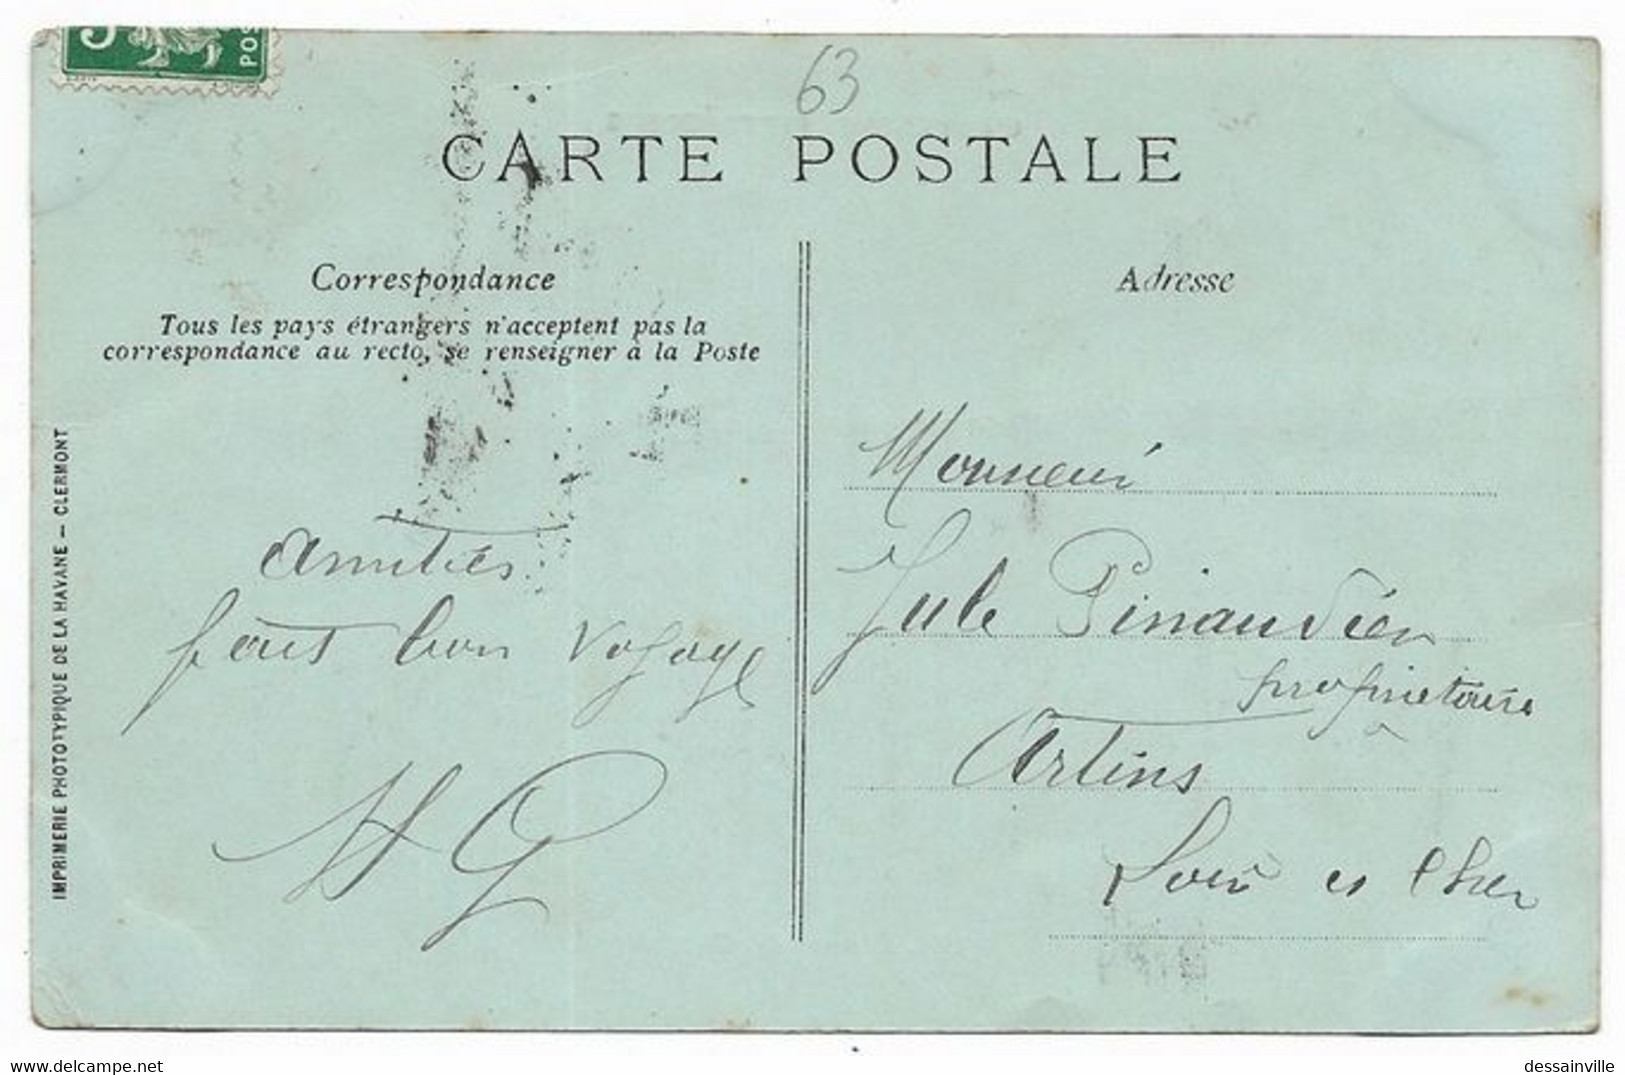 63
POS
CARTE POSTALE
Correspondance
Tous les pays étrangers n'acceptent pas la
correspondance au recto, se renseigner à la Poste
Amitiés
bon voyage
H G
IMPRIMERIE PHOTOTYPIQUE DE LA HAVANE — CLERMONT
Adresse
Monsieur
Jule
propriétaire
Artins
Loir et Cher
https://www.delcampe.net
dessainville